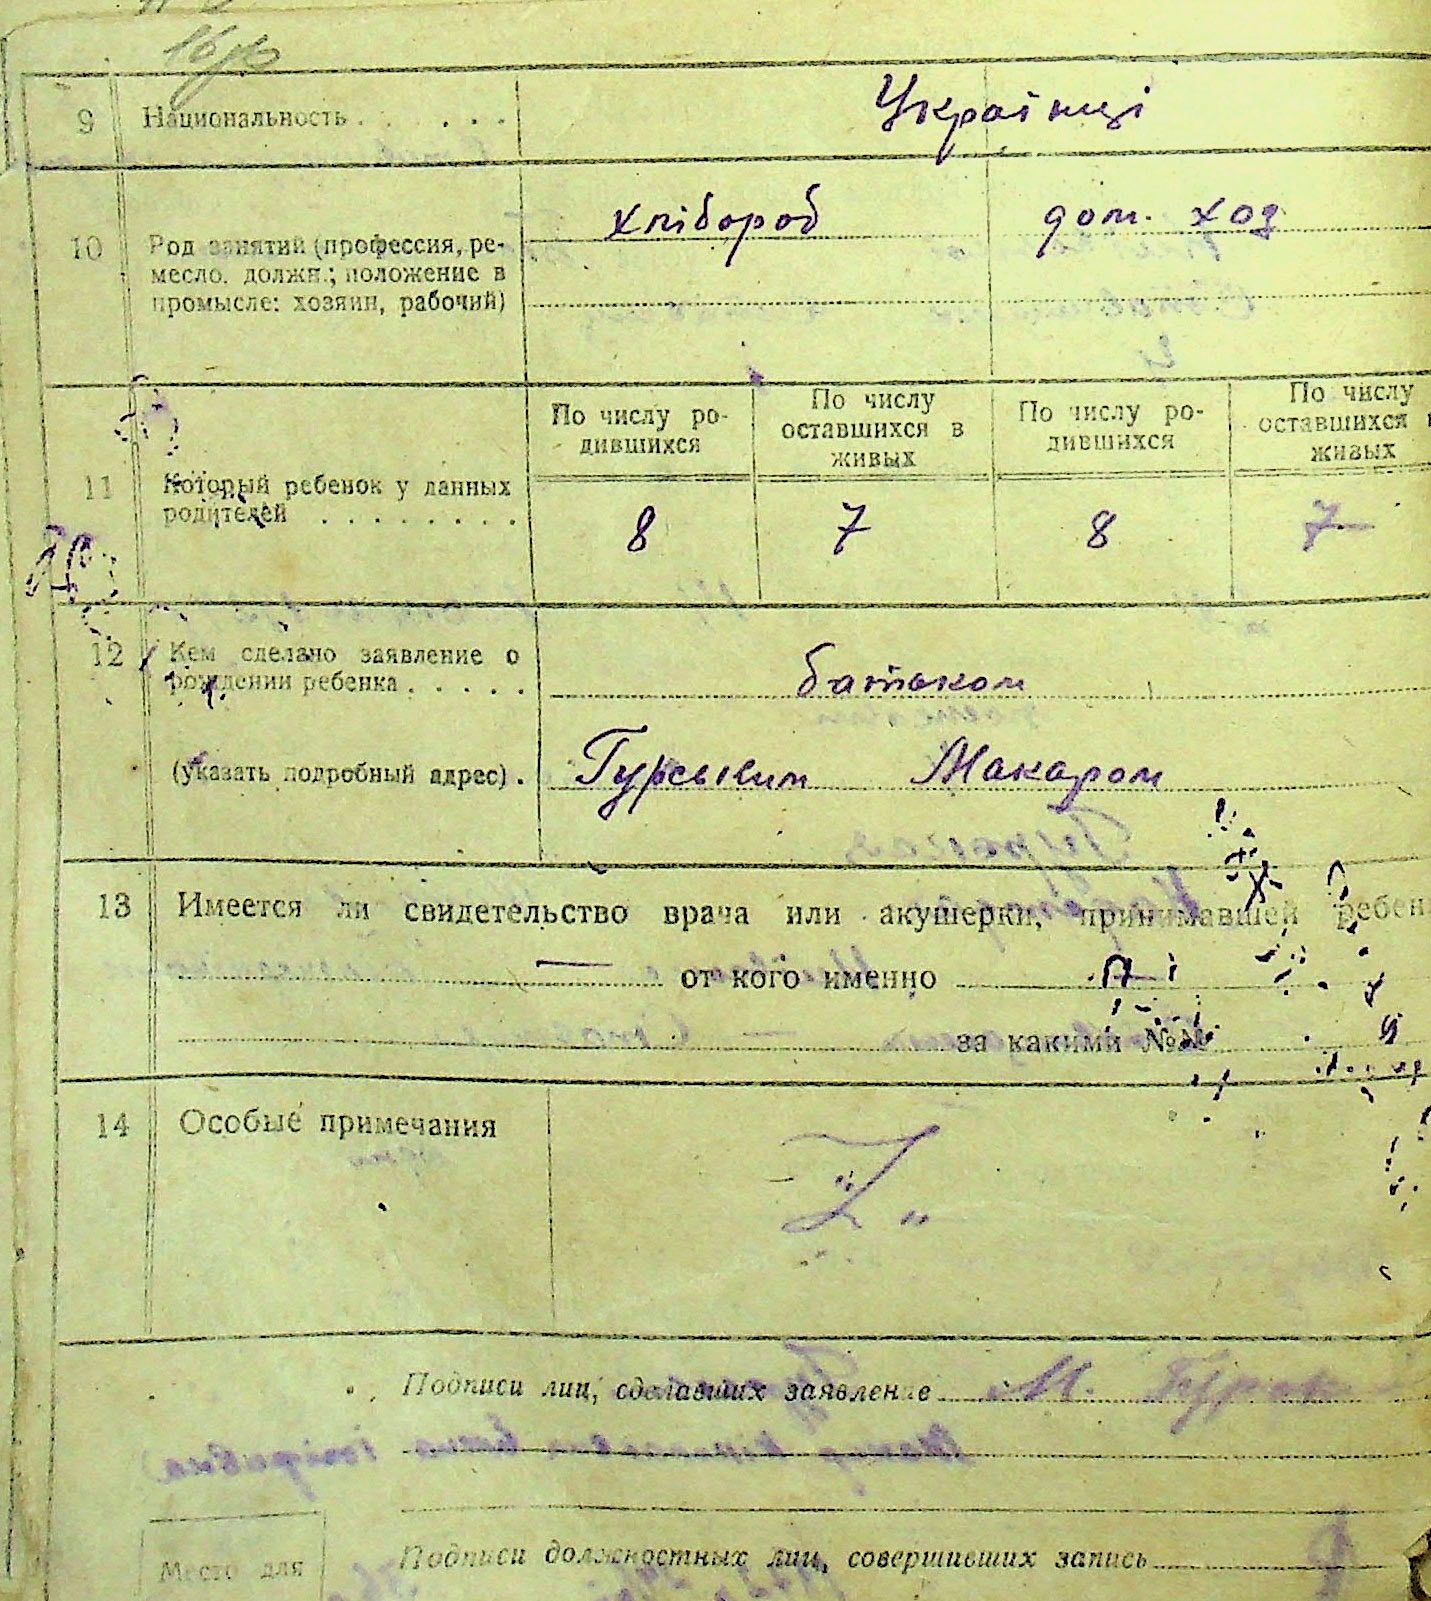 9 Национальность . . . . . Українці
10 Род занятий (профессия, ре-
месло, должн.; положение в
промысле: хозяин, рабочий)
хлібороб дом. ход
11 Который ребенок у данных
родителей . . . . . . . .
По числу ро-
дившихся
По числу
оставшихся в
живых
По числу ро-
дившихся
По числу
оставшихся
живых
8 7 8 7
12 Кем сделано заявление о
рождении ребенка . . . . .
батьком
(указать подробный адрес) .
Гурським Макаром
13 Имеется ли свидетельство врача или акушерки, принимавшей ребен
— от кого именно
за какими №№
14 Особые примечания
Подписи лиц, сделавших заявление М. Гурск
Подписи должностных лиц, совершивших запись
Место для